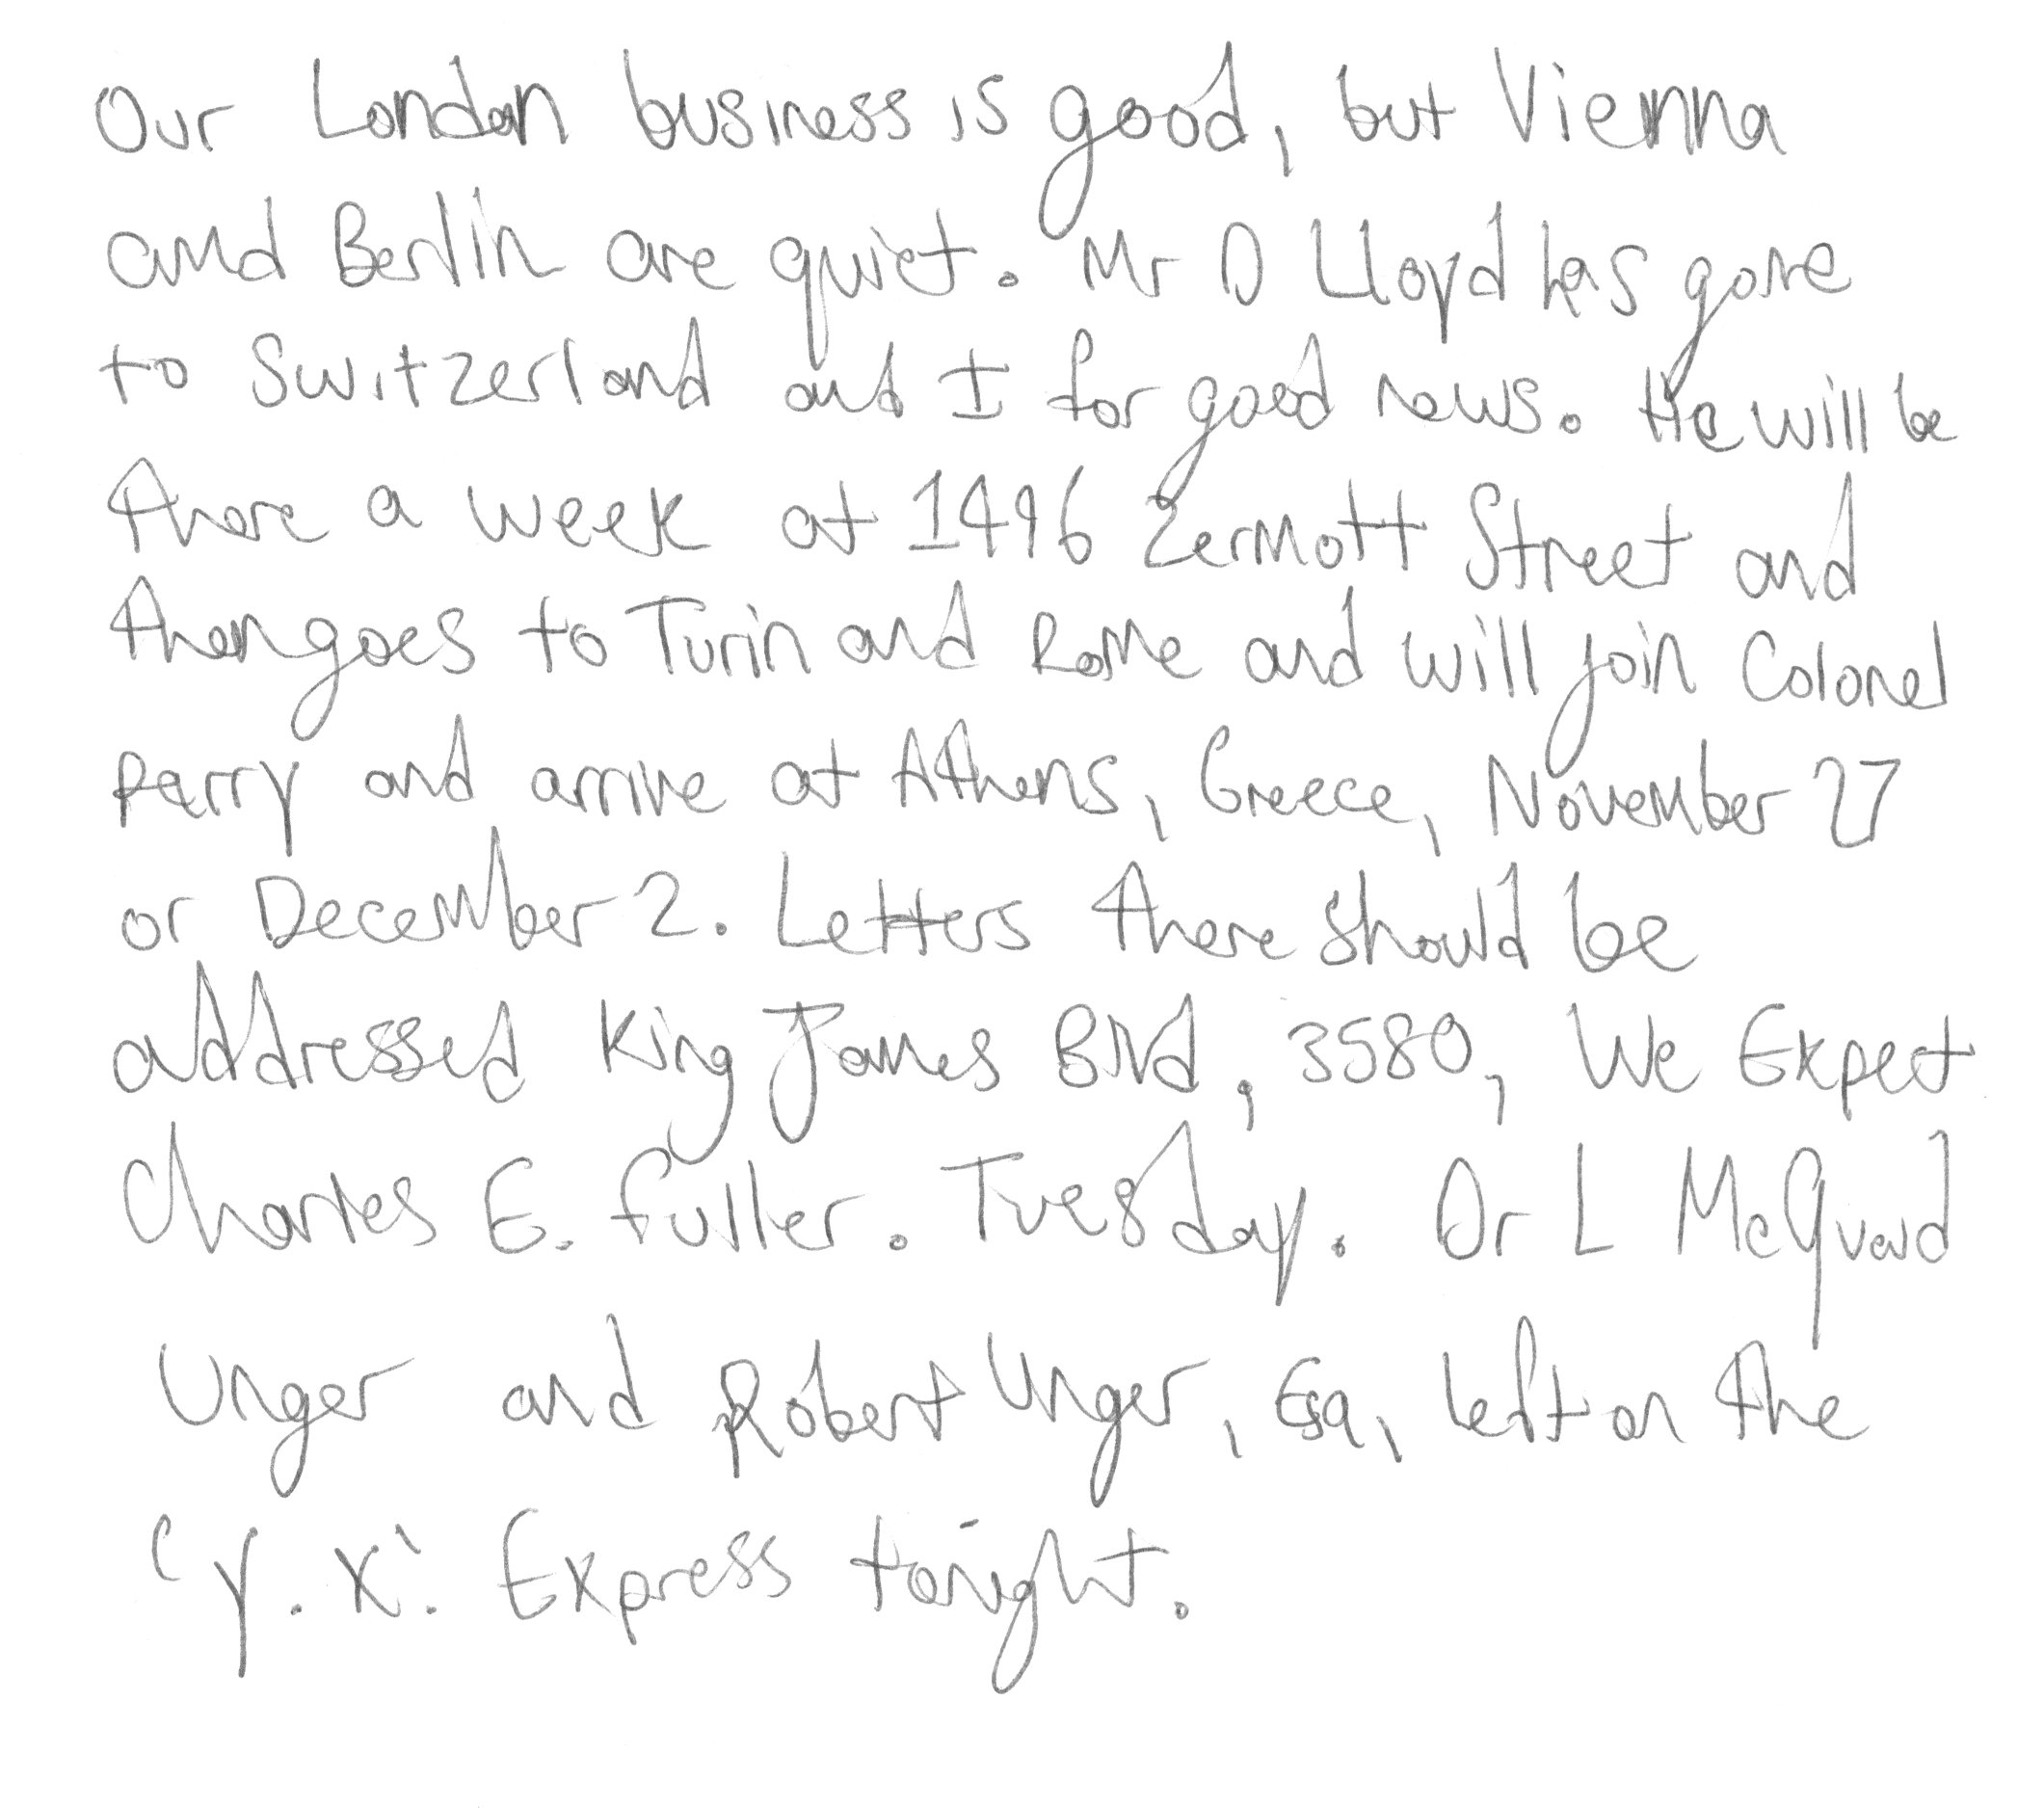 Our London business is good, but Vienna
and Berlin are quiet. Mr D Lloyd has gone
to Switzerland and I for good news. He will be
there a week at 1496 Zermott Street and
then goes to Turin and Rome and will join Colonel
Parry and arrive at Athens, Greece, November 27
or December 2. Letters there should be
addressed King James Blvd, 3580, We Expect
Charles E. Fuller. Tuesday. Dr L McQuaid
Unger and Robert Unger, Esq, left on the
'Y.X'. Express tonight.